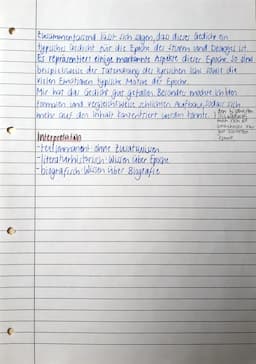 Zusammenfassend lässt sich sagen, dass dieses Gedicht ein
typisches Gedicht für die Epoche des Sturm und Dranges ist.
Es repräsentiert einige markante Aspekte dieser Epoche. So sind
beispielsweise der Tatendrang des lyrischen Ichs sowie die
vielen Emotionen typische Motive der Epoche.
Mir hat das Gedicht gut gefallen. Besonders mochte ich den
formalen und vergleichsweise schlichten Aufbau, sodass sich
mehr auf den Inhalt konzentriert werden konnte.
Interpretation
-textimmanent: ohne Zusatzwissen
-literaturhistorisch: Wissen über Epoche
-biografisch: Wissen über Biografie